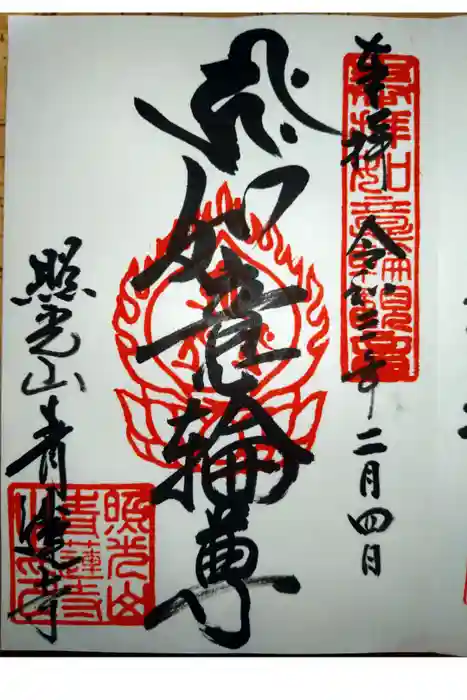 奉拝 令和三年 二月四日
如意輪尊
照光山 青蓮寺
照光山
青蓮寺